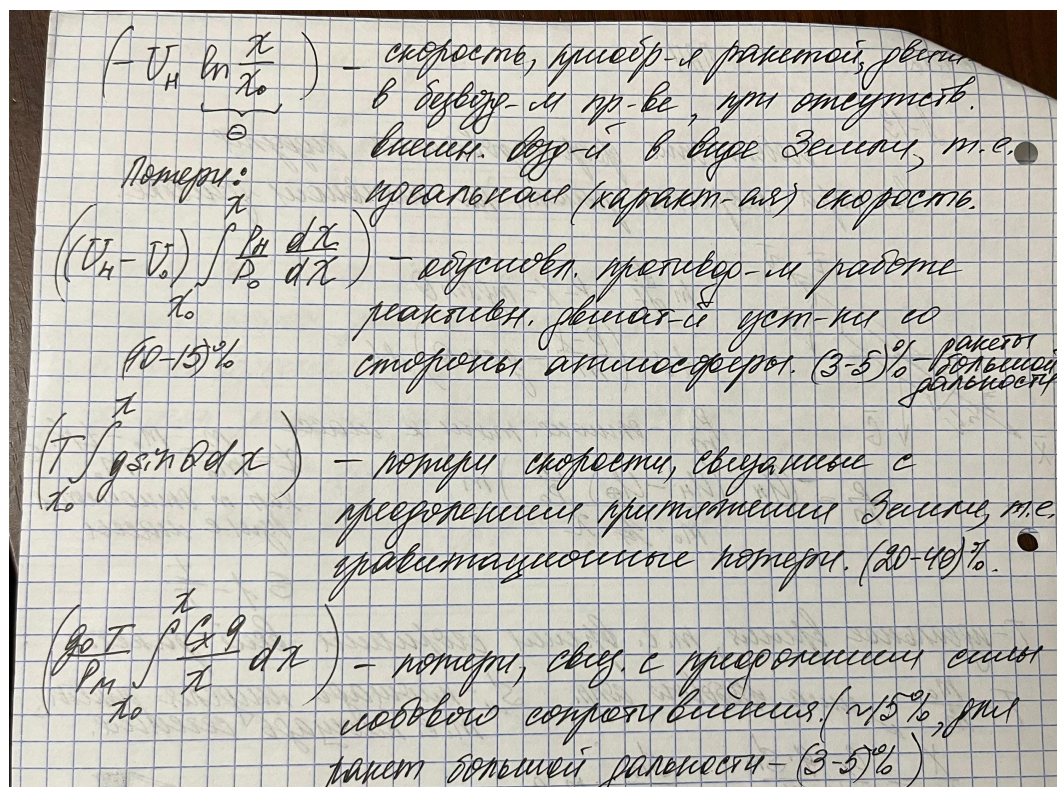 (-U_н ln x/x_0) – скорость, приобр-я ракетой, движ
⊖ в безвозд-м пр-ве, при отсутств.
внешн. возд-й в виде Земли, т.е.
Потери: идеальная (характ-ая) скорость.
((U_н – U_0) ∫_{x_0}^{x} P_н/P_0 dx/dx) – обусловл. противод-м работе
реактивн. двигат-й уст-ки со
(10-15)% стороны атмосферы. (3-5)% – ракеты большой дальности
(T ∫_{x_0}^{x} g sin θ dx) – потери скорости, связанные с
преодолением притяжения Земли, т.е.
гравитационные потери. (20-40)%.
(g_0 T/P_м ∫_{x_0}^{x} C_x q/x dx) – потери, связ. с преодолением силы
лобового сопротивления. (~15%, для
ракет большой дальности – (3-5)%)